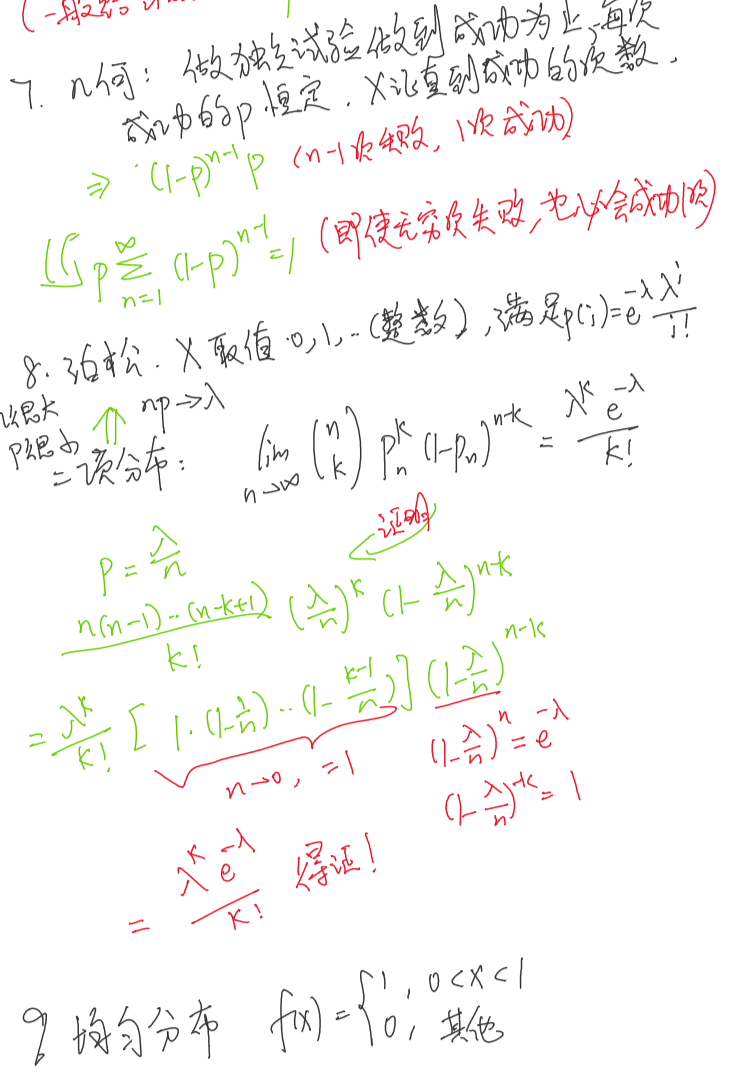 (一般
7. n何：做独立试验做到成功为止,每次
成功的p恒定．X记直到成功的次数．
⇒ (1-p)^{n-1} p (n-1次失败, 1次成功)
p∑_{n=1}^{∞} (1-p)^{n-1} = 1 (即使无穷次失败,也必会成功1次)
8. 泊松．X取值0,1,..(整数),满足p(i)=e^{-λ} λ^i/i!
很大
p很小 ⇑ np→λ
二项分布： lim_{n→∞} (n k) p_n^k (1-p_n)^{n-k} = λ^k e^{-λ}/k!
证明
p = λ/n
n(n-1)..(n-k+1)/k! (λ/n)^k (1-λ/n)^{n-k}
= λ^k/k! [1·(1-1/n)..(1-(k-1)/n)] (1-λ/n)^{n-k}
n→0, =1
(1-λ/n)^n = e^{-λ}
(1-λ/n)^{-k} = 1
= λ^k e^{-λ}/k! 得证!
9 均匀分布 f(x) = {1, 0<x<1
0, 其他